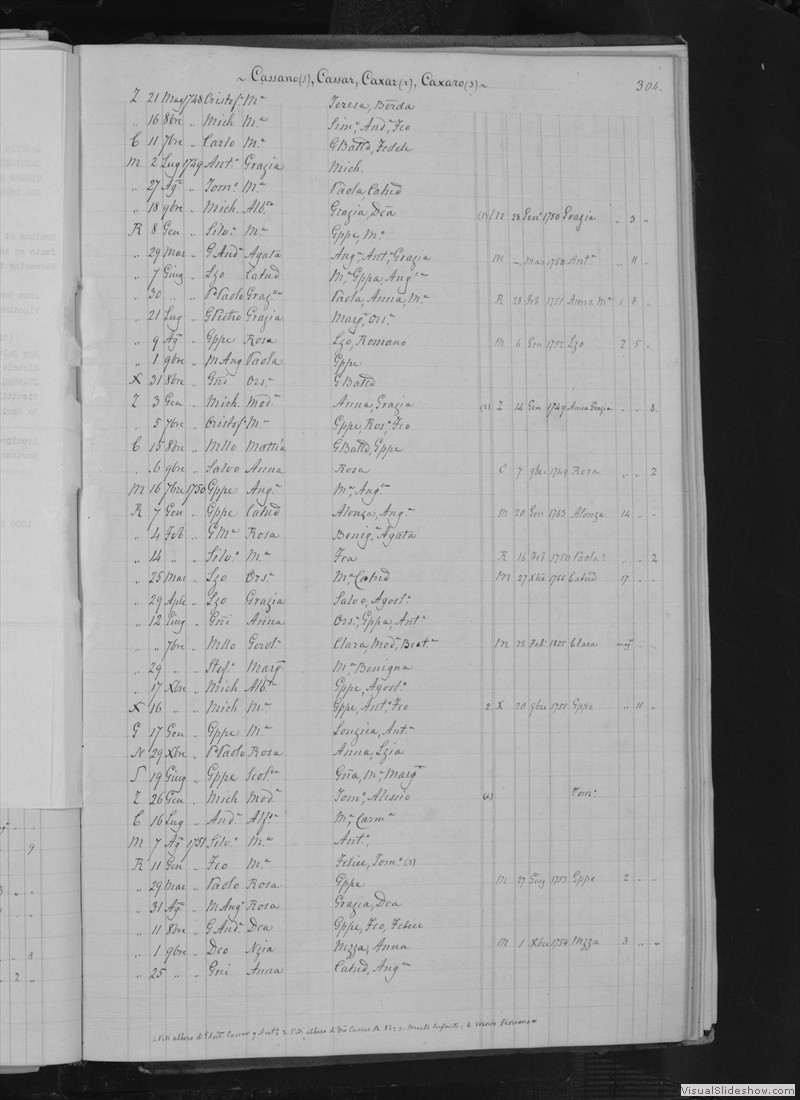 ~ Cassano(1), Cassar, Caxar(2), Caxaro(3) ~ 304.
Z 21 Mag 1748 Cristof.º M.a Teresa, Borda
„ 16 8bre „ Mich M.a Sim.e, And.a, Fco
C 11 7bre „ Carlo M.a GBattã, Fedele
M 2 Lug 1749 Ant.º Grazia Mich.
„ 27 Ag.º „ Tom.º M.a Paola Catnã
„ 18 9bre „ Mich. Alb.ra Grazia, Dea (1) M 28 Gen.º 1750 Grazia „ 3 „
R 8 Gen „ Silv.º M.a Gppe, M.a
„ 29 Mar „ G And.a Agata Ang.a, Ant.a, Grazia M „ Mar 1750 Ant.º „ 11 „
„ 7 Giug „ Lzo Catnã M.a, Gppa, Ang.ca
„ 30 „ „ P. Paolo Graz.lla Paola, Anna, M.a R 28 Feb 1751 Anna M.a 1 8 „
„ 21 Lug „ GPietro Grazia Marg.ta, Ors.a
„ 9 Ag.º „ Gppe Rosa Lzo, Romano M 6 Gen 1752 Lzo 2 5 „
„ 1 9bre „ M Ang Paola Gppe
X 31 8bre „ Gñi Ors.a GBattã
Z 3 Gen „ Mich. Mod.a Anna, Grazia (2) Z 14 Gen 1749 Anna Grazia „ „ 8.
„ 5 7bre „ Cristof.º M.a Gppe, Ros.a, Fco
C 15 8bre „ Mllo Mattia GBattã, Gppe
„ 6 9bre „ Salvo Anna Rosa C 7 9bre 1749 Rosa „ „ 2
M 16 7bre 1750 Gppe Ang.ca M.a, Ang.ca
R 7 Gen „ Gppe Catnã Alonza, Ang.ca M 20 Gen 1763 Alonza 14 „ „
„ 4 Feb „ G M.a Rosa Benig.a, Agata
„ 14 „ „ Silv.º M.a Fca R 16 Feb 1750 Paola „ „ 2
„ 25 Mar „ Lzo Ors.a M.a, Catnã M 27 Xbre 1766 Catnã 17 „ „
„ 29 Aple „ Lzo Grazia Salvo, Agost.º
„ 12 Giug „ Gñi Anna Ors.a, Gppa, Ant.a
„ „ 7bre „ Mllo Gerol.a Clara, Mod.a, Beat.ce M 25 Feb 1825 Clara
„ 29 „ „ Stef.º Marg.ta M.a, Benigna
„ 17 Xbre „ Mich Alb.ra Gppe, Agost.º
X 16 „ „ Mich M.a Gppe, Ant.º, Fco 2 X 20 9bre 1751 Gppe „ 11 „
G 17 Gen „ Gppe M.a Lonzica, Ant.a
N 29 Xbre „ P. Paolo Rosa Anna, Lzia
S 19 Giug „ Gppe Scol.ca Gña, M.a, Marg.ta
Z 26 Gen „ Mich Mod.a Tom.º, Alessio (4) Tom.º
C 16 Lug „ And.a Alf.a M.a, Carm.a
M 7 Ag.º 1751 Silv.º M.a Ant.º,
R 11 Gen „ Fco M.a Felice, Tom.º (3)
„ 29 Mar „ Paolo Rosa Gppe M 27 Giug 1753 Gppe 2 „ „
„ 31 Ag.º „ M Ang.º Rosa Grazia, Dea
„ 11 8bre „ G And.a Dea Gppe, Fco, Felice
„ 1 9bre „ Dco Nzia Nzza, Anna M 1 Xbre 1754 Nzza 3 „ „
„ 25 „ „ Gñi Anna Catnã, Ang.ca
VisualSlideshow.com